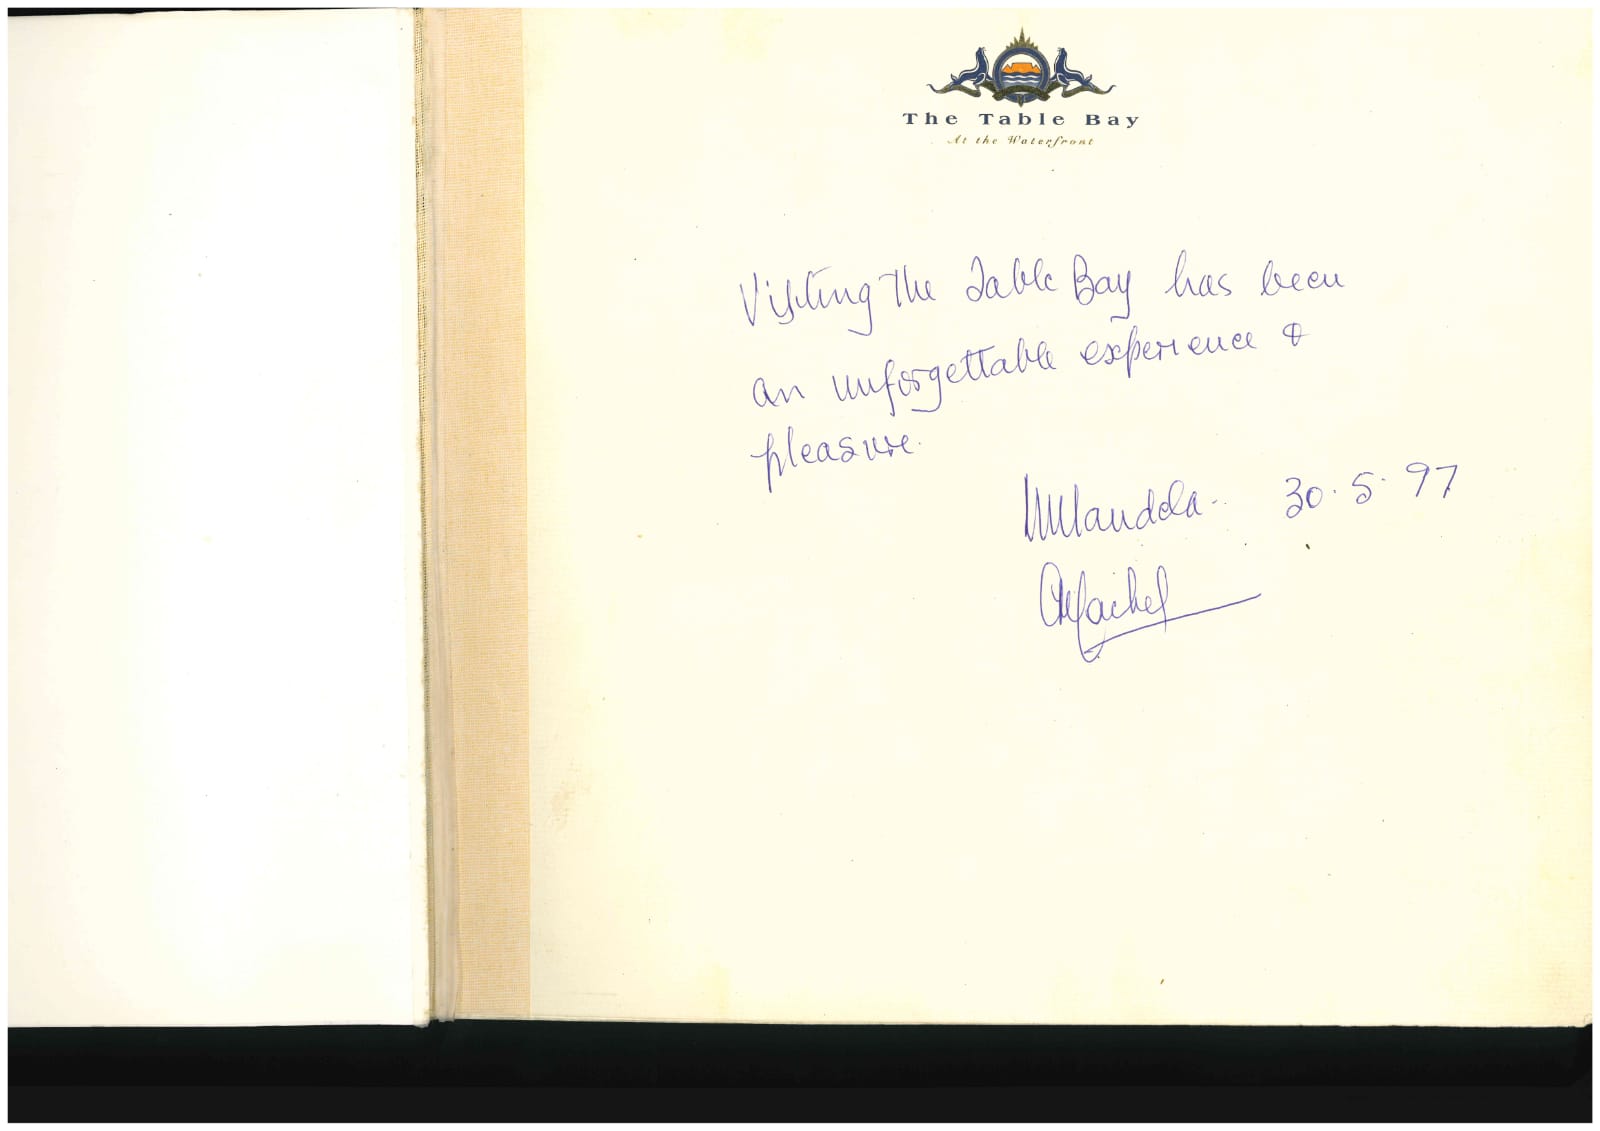 The Table Bay
At the Waterfront
Visiting The Table Bay has been
an unforgettable experience &
pleasure.
NMandela 30.5.97
GMachel